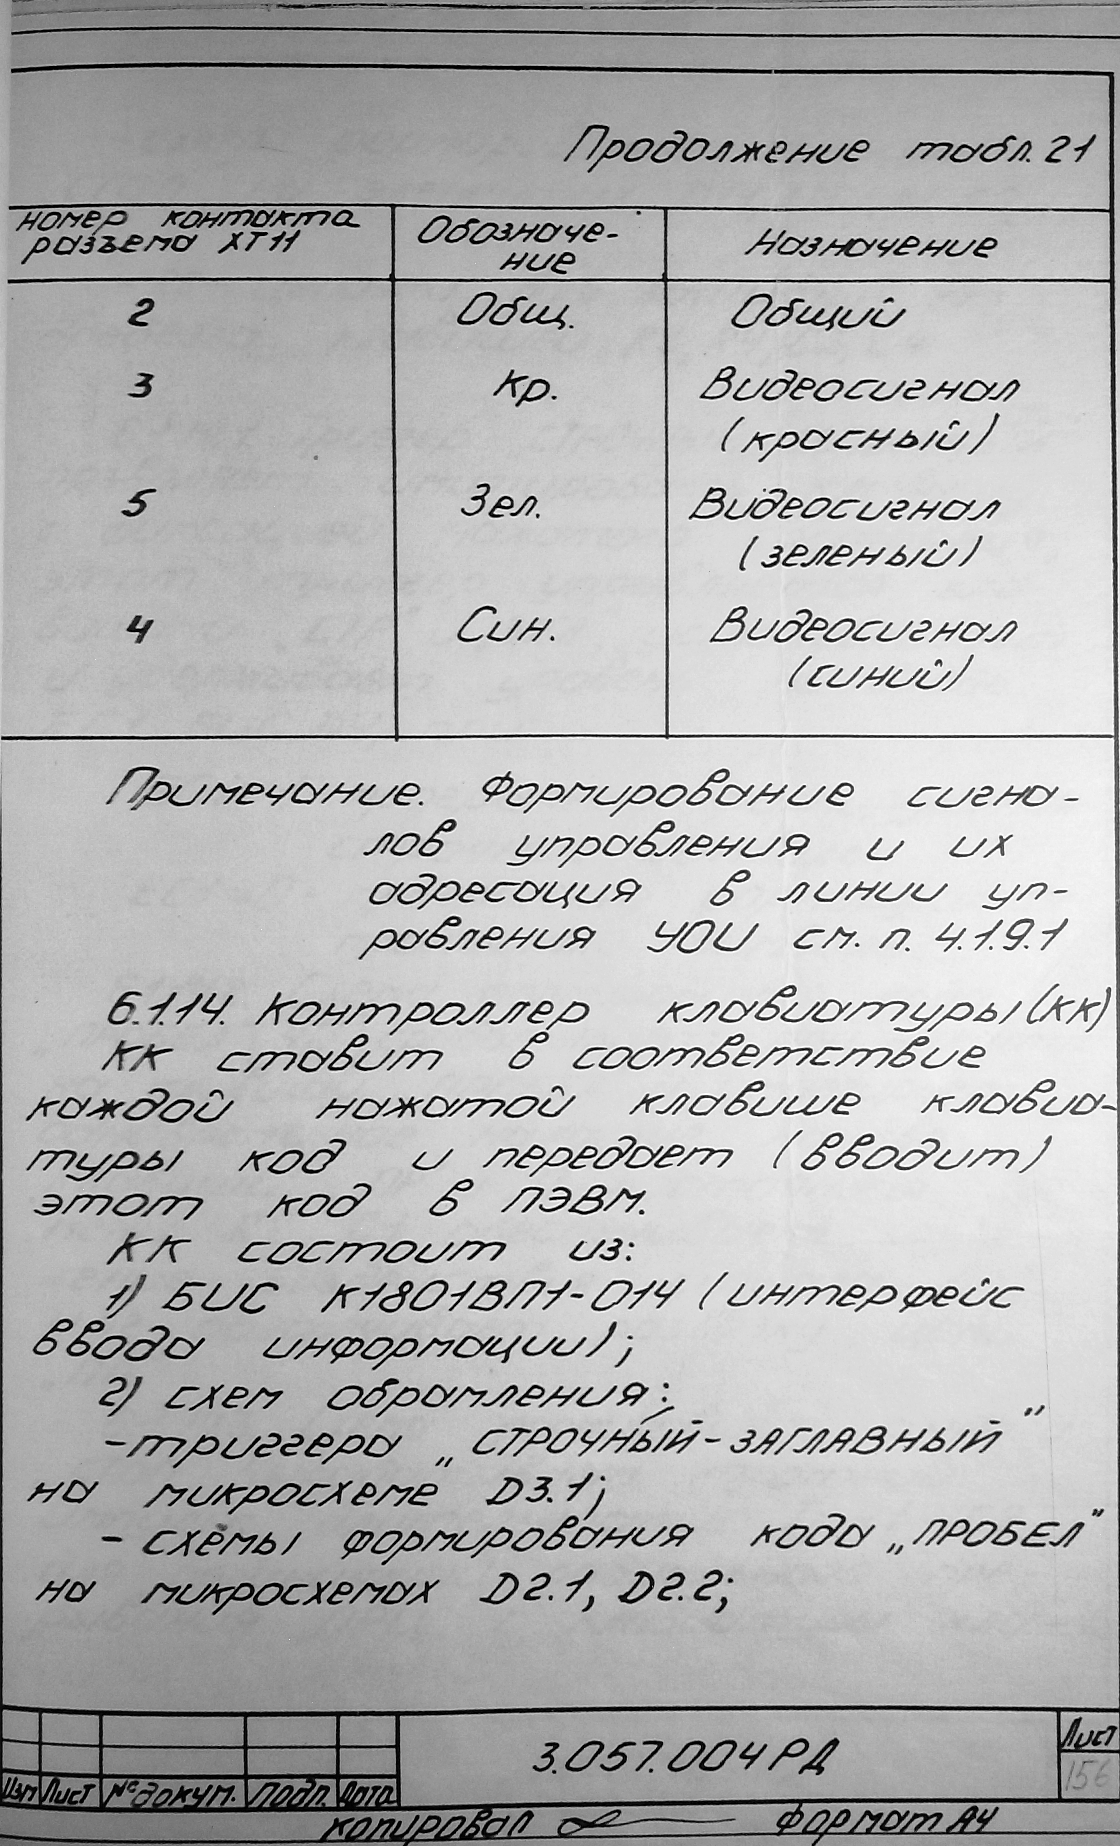 Продолжение табл. 21
номер контакта разъема ХТ11 Обозначе-ние Назначение
2 Общ. Общий
3 Кр. Видеосигнал
(красный)
5 Зел. Видеосигнал
(зеленый)
4 Син. Видеосигнал
(синий)
Примечание. Формирование сигна-
лов управления и их
адресация в линии уп-
равления УОИ см. п. 4.1.9.1
6.1.14. Контроллер клавиатуры (КК)
КК ставит в соответствие
каждой нажатой клавише клавиа-
туры код и передает (вводит)
этот код в ПЭВМ.
КК состоит из:
1) БИС К1801ВП1-014 (интерфейс
ввода информации);
2) схем обрамления:
-триггера „СТРОЧНЫЙ-ЗАГЛАВНЫЙ"
на микросхеме D3.1;
- схемы формирования кода „ПРОБЕЛ"
на микросхемах D2.1, D2.2;
3.057.004 РД
Лист
156
Изм Лист № докум. Подп. Дата
Копировал Формат А4